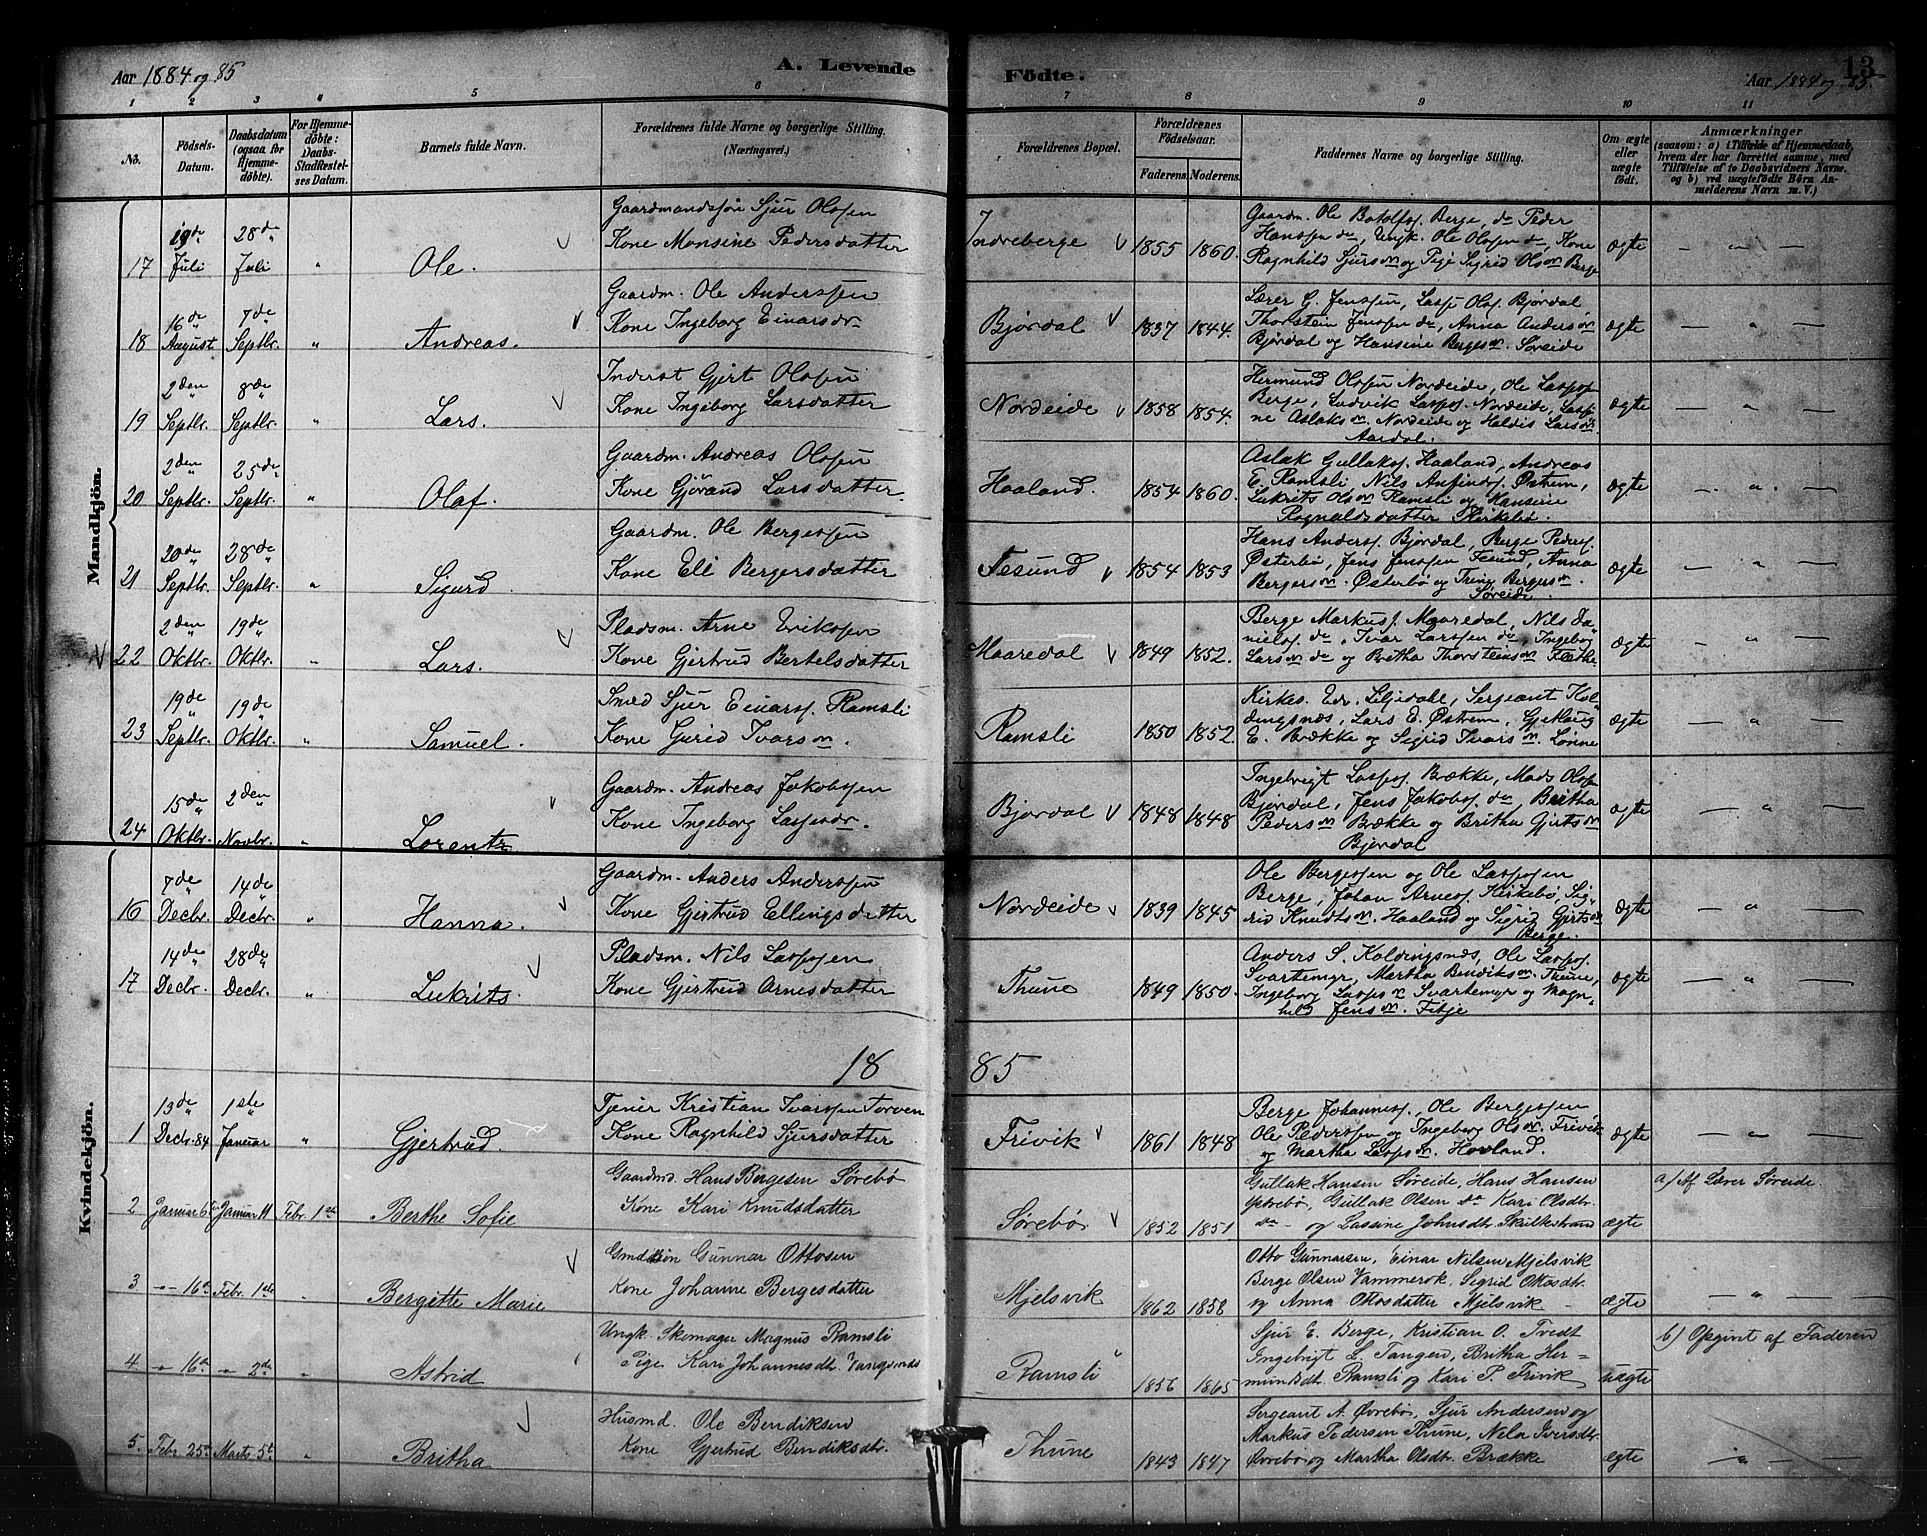 Aar 1884 og 85
A. Levende
Födte.
Aar 1884 og 85
13
1 2 3 4 5 6 7 8 9 10 11
No.
Födsels-Datum.
Daabsdatum (ogsaa for Hjemmedöbte).
For Hjemmedöbte: Daabs-Stadfæstelses Datum.
Barnets fulde Navn.
Forældrenes fulde Navne og borgerlige Stilling. (Næringsvei.)
Forældrenes Bopæl.
Forældrenes Födselsaar. Faderens. Moderens.
Faddernes Navne og borgerlige Stilling.
Om ægte eller uægte födt.
Anmærkninger (saasom: a) i Tilfælde af Hjemmedaab, hvem der har forrettet samme, med Tilföielse af to Daabsvidners Navne. og b) ved uægtefödte Börn Anmelderens Navn m. V.)
Mandkjön.
17 19de Juli 28de Juli " Ole.
Gaardmandssøn Sjur Olssen
Kone Monsine Pedersdatter
Indreberge 1855 1860.
Gaardm. Ole Botolfs. Berge, do Peder
Hanssen do, Ungk. Ole Olssen do, Kone
Ragnhild Sjursdn og Pige Sigrid Olsdn Berge
ægte — " —
18 16de August 7de Septbr. " Andreas.
Gaardm. Ole Anderssen
Kone Ingeborg Einarsdr
Bjørdal 1837 1844.
Lærer G. Jenssen, Lasse Ols. Bjørdal
Thorstein Jenssen do, Anna Andersdn
Bjørdal og Hansine Bergesdn. Søreide
ægte — " —
19 2den Septbr. 8de Septbr. " Lars.
Inderst Gjert Olssen
Kone Ingeborg Larsdatter
Nordeide 1858 1854.
Hermund Olssen Nordeide, Ole Lasses.
Berge, Ludvik Lasses. Nordeide, Lass-
ne Aslaksdn. Nordeide og Heldis Larsdn
Aardal.
ægte — " —
20 2den Septbr. 25de Septbr. " Olaf.
Gaardm. Andreas Olssen
Kone Gjörand Larsdatter
Haaland. 1854 1860.
Aslak Gullaks. Haaland, Andreas
E. Ramsli Nils Anfinds. Østrem,
Lukrits Olsdn Ramsli og Hanserine
Ragnaldsdatter Kirkebø.
ægte — " —
21 20de Septbr. 28de Septbr. " Sigurd.
Gaardm. Ole Bergessen
Kone Eli Bergersdatter
Tesund 1854 1853
Hans Anders. Bjørdal, Berge Peders.
Østerbø, Jens Jenssen Tesund, Anna
Bergersdn. Østerbø og Trine Bergersdn.
Søreide
ægte — " —
22 2den Oktbr. 19de Oktbr. " Lars.
Pladsm. Arne Erikssen
Kone Gjertrud Bertelsdatter
Maaredal 1849 1852.
Berge Markuss. Maaredal, Nils Da-
niels. do, Ivar Larssen do, Ingeborg
Larsdn do og Britha Thorsteinsdn Flæthe
ægte — " —
23 19de Septbr. 19de Oktbr. " Samuel.
Smed Sjur Einars. Ramsli
Kone Gurid Ivarsdn.
Ramsli 1850 1852.
Kirkes. Edv. Liljedale, Sergeant Kol-
dingsnæs, Lars E. Østrem, Gjetlaug
E. Brække og Sigrid Ivarsdn. Lønne
ægte — " —
24 15de Oktbr. 2den Novbr. " Lorentz
Gaardm. Andreas Jakobssen
Kone Ingeborg Lassesdr.
Bjørdal 1848 1848
Ingebrigt Lasses. Brække, Mads Olss.
Bjørdal, Jens Jakobs. do, Britha
Pedersdn Brække og Britha Gjertsdn
Bjørdal
ægte — " —
Kvindekjön.
16 7de Decbr. 14de Decbr. " Hanna.
Gaardm. Anders Anderssen
Kone Gjertrud Ellingsdatter
Nordeide 1839 1845
Ole Bergessen og Ole Lassesen
Berge, Johan Arnes. Kirkebø, Sig-
rid Knudtsdn. Haaland og Sigrid Gjertsdn
Berge.
ægte — " —
17 14de Decbr. 28de Decbr. " Lukrits.
Pladsm. Nils Lassesen
Kone Gjertrud Arnesdatter
Thune 1849 1850.
Anders S. Koldingsnæs, Ole Lasses.
Svartemyr, Martha Bendiksdn. Thune,
Ingeborg Lassesdn Svartemyr og Magn-
hild Jensdn. Fitje
ægte — " —
18 85
1 13de Decbr. 84 1ste Januar " Gjertrud.
Tjener Kristian Ivarssen Torven
Kone Ragnhild Sjursdatter
Frivik 1861 1848
Berge Johanness., Ole Bergessen
Ole Pederssen og Ingeborg Olsdn. Frivik
og Martha Lassesdn. Hovland.
ægte — " —
2 Januar 6te Januar 11 Febr. 1ste Berthe Sofie
Gaardmd. Hans Bergesen Sørebø
Kone Kari Knudsdatter
Sørebø 1852 1851
Gullak Hansen Søreide, Hans Hansen
Ystebø, Gullak Olsen do Kari Olsdtr.
do — og Lassine Johnsdtr. Skilbestrand
ægte a) Af Lærer Søreide.
3 " 16de Febr. 1ste " Bergitte Marie
Gmdssøn Gunnar Ottosen
Kone Johanne Bergesdatter
Mjelsvik 1862 1858
Otto Gunnarsen, Einar Nilsen Mjelsvik
Berge Olsen Vammerok, Sigrid Ottosdtr.
og Anna Ottosdatter Mjelsvik
ægte — " —
4. " 16de " 2de " Astrid
Ungk. Skomager Magnus Ramsli
Pige Kari Johannesdtr. Vangsnæs
Ramsli 1856 1865
Sjur E. Berge, Kristian O. Tvedt
Ingebrigt L. Tangen, Britha Her-
mundsdtr. Ramsli og Kari P. Frivik
uægte b) Opgivt af Faderen
5. Febr. 25de Marts 5te " Britha
Husmd. Ole Bendiksen
Kone Gjertrud Bendiksdtr.
Thune 1843 1847
Sergeant A. Øvrebø, Sjur Andersen og
Markus Pedersen Thune, Nila Iversdtr.
Øvrebø og Martha Olsdtr. Brække
ægte — " —